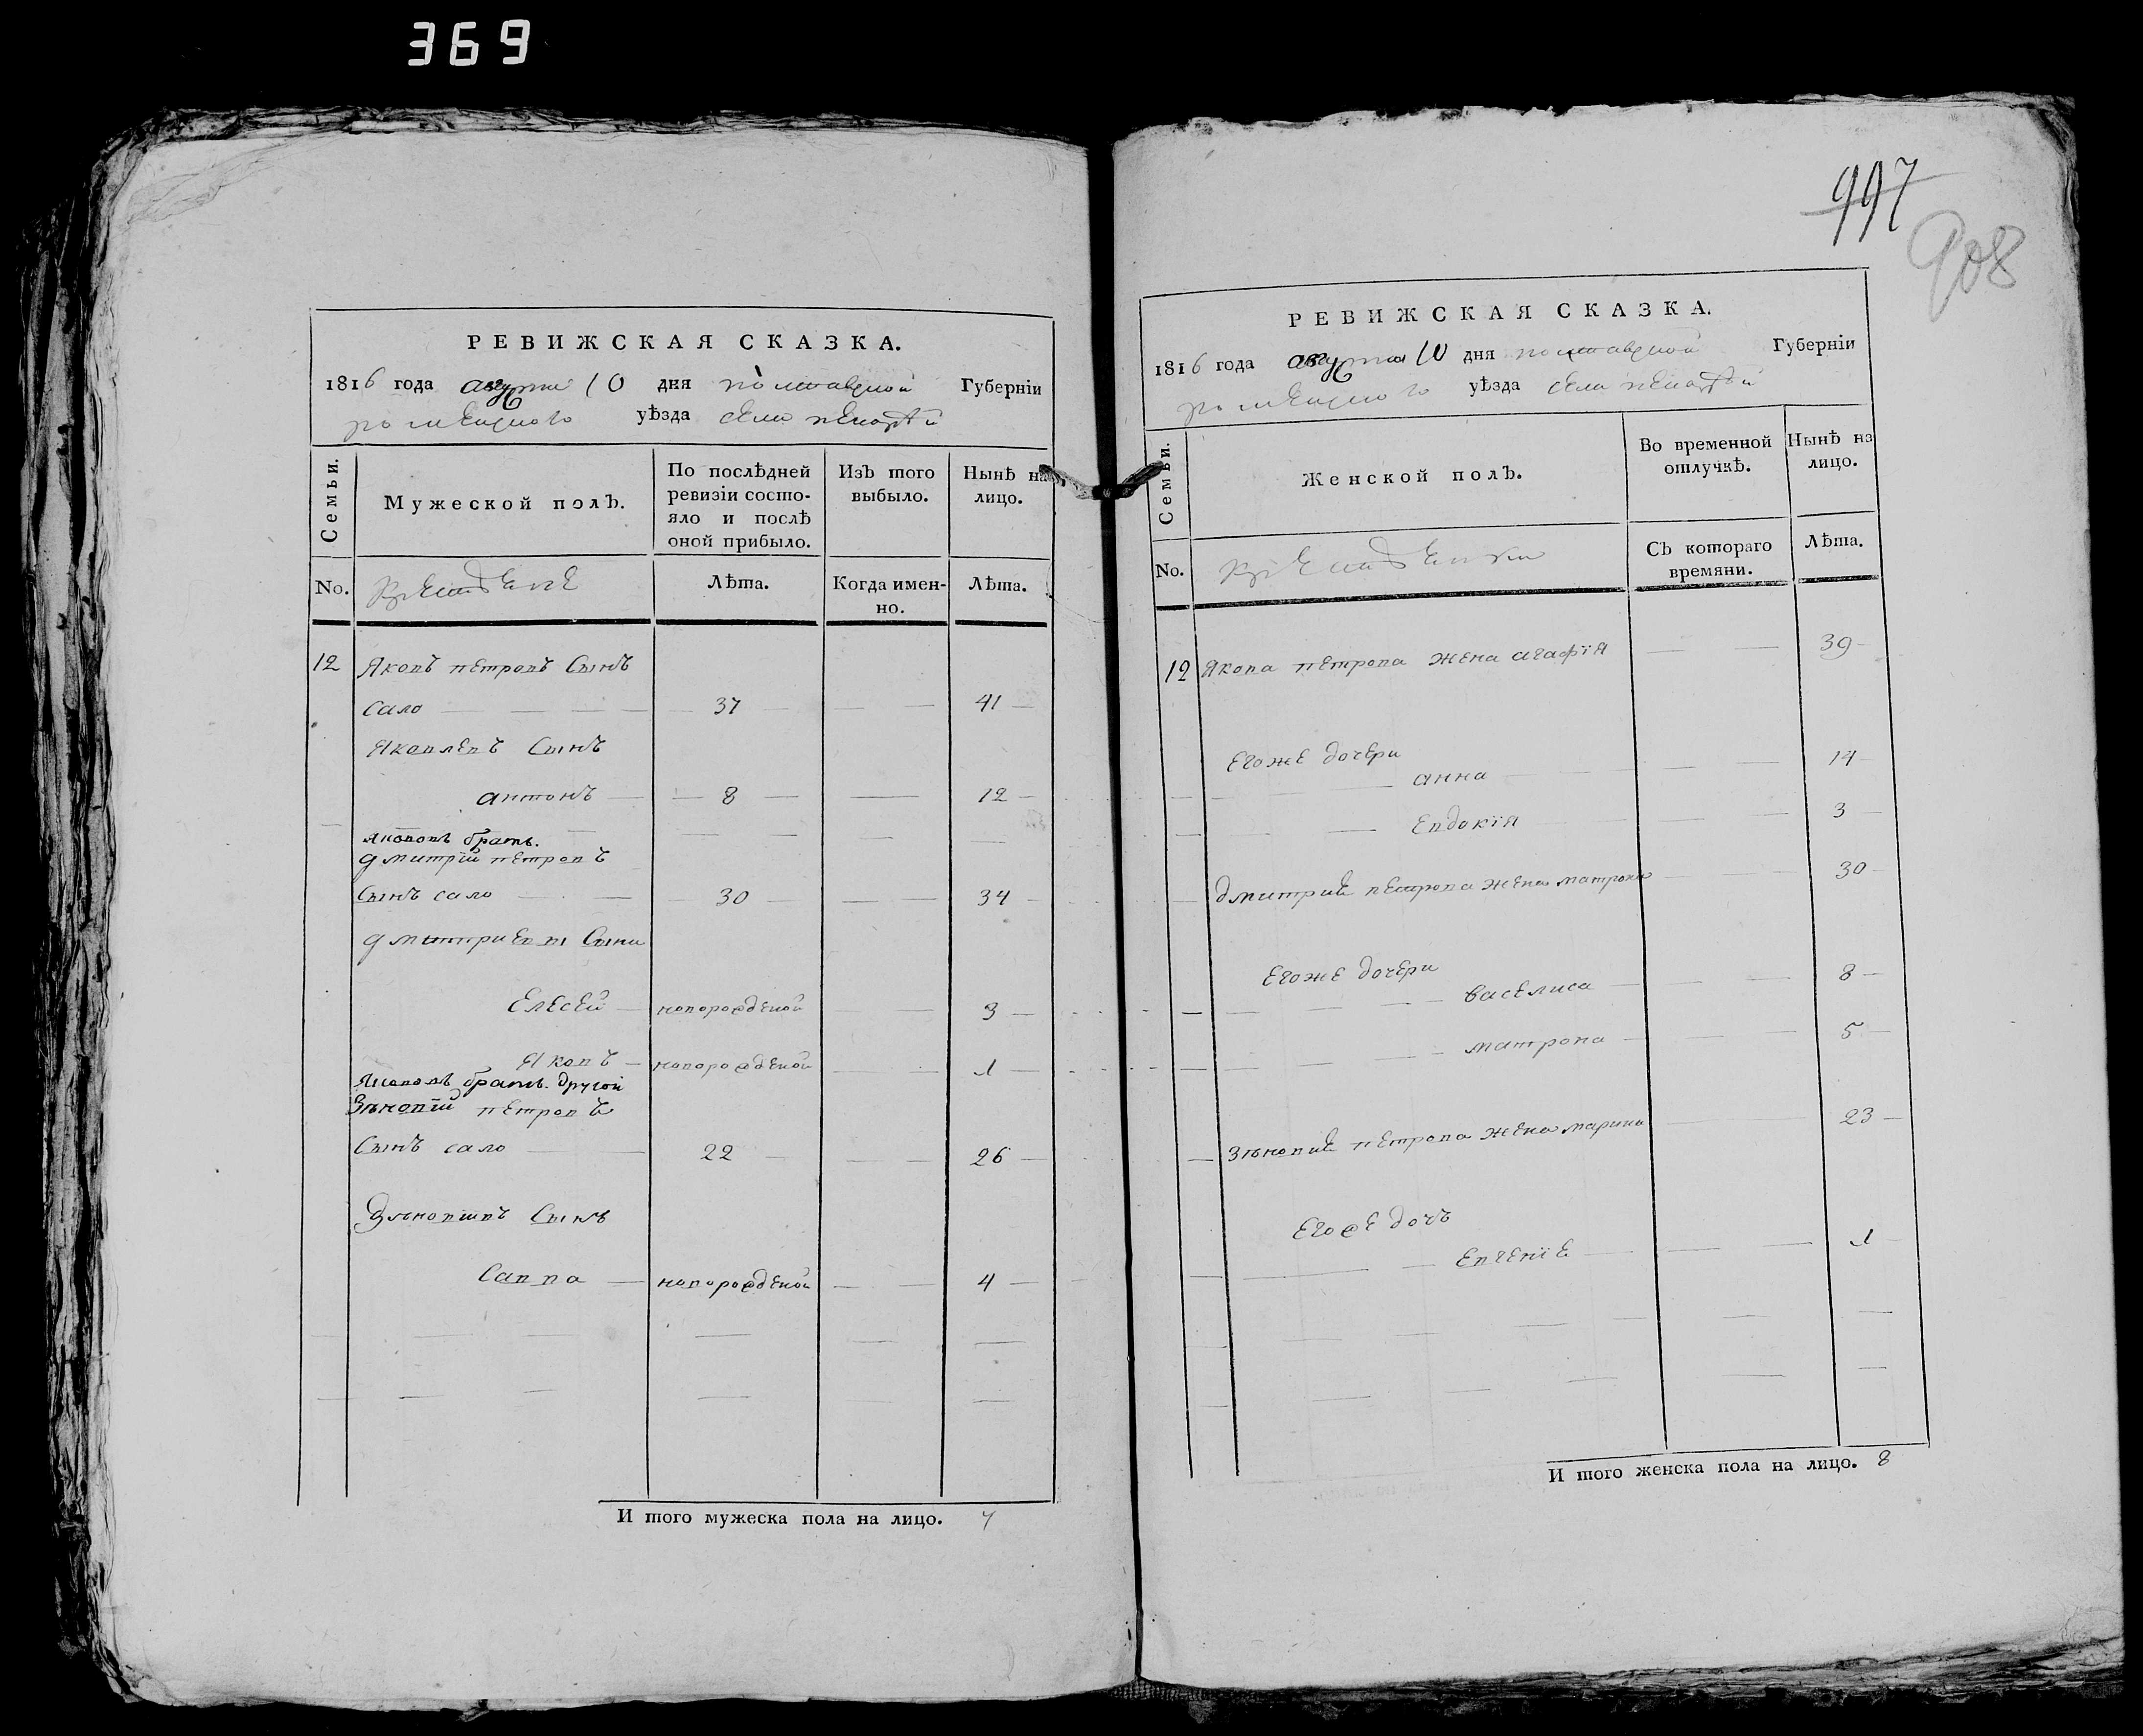 369
РЕВИЖСКАЯ СКАЗКА.
1816 года августа 10 дня полтавской Губерніи
роменского уѣзда села
Семьи.
Мужеской полъ.
По послѣдней ревизіи состо-
яло и послѣ
оной прибыло.
Изъ того выбыло.
Нынѣ на лицо.
No.
Лѣта.
Когда имен-
но.
Лѣта.
12 Яковъ петровъ Сынъ
Сало 37 41
Яковлевъ Сынъ
антонъ 8 12
Якововъ братъ.
дмитрій петровъ
Сынъ сало 30 34
дмитриевы Сыны
Елесей новорожденой 3
Яковъ новорожденой 1
Якововъ братъ другой
Зѣновій петровъ
Сынъ сало 22 26
Зѣновіивъ Сынъ
Савва новорожденой 4
И того мужеска пола на лицо. 7
997
908
РЕВИЖСКАЯ СКАЗКА.
1816 года августа 10 дня полтавской Губерніи
роменского уѣзда села
Семьи.
Женской полъ.
Во временной отлучкѣ.
Нынѣ на лицо.
No.
Съ котораго времяни.
Лѣта.
12 Якова петрова жена агафія 39
Егоже дочери
анна 14
Евдокія 3
дмитрие петрова жена матрона 30
Егоже дочери
василиса 8
матрона 5
Зѣновие петрова жена марина 23
Егоже дочъ
Евгеніе 1
И того женска пола на лицо. 8